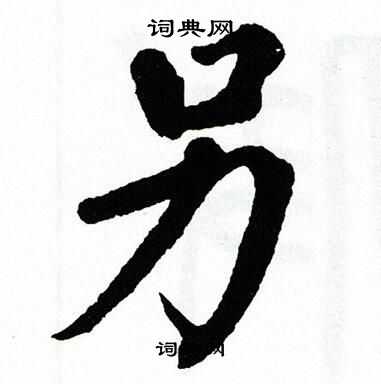 词典网
另
词典网